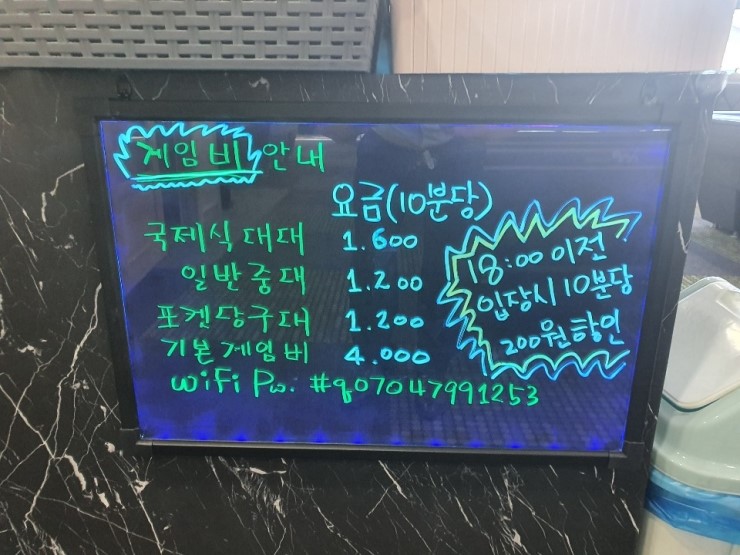 게임비 안내
요금(10분당)
국제식대대 1.600
일반중대 1.200
포켓당구대 1.200
기본게임비 4.000
WiFi Pw. #q07047991253
18:00 이전
입장시 10분당
200원 할인